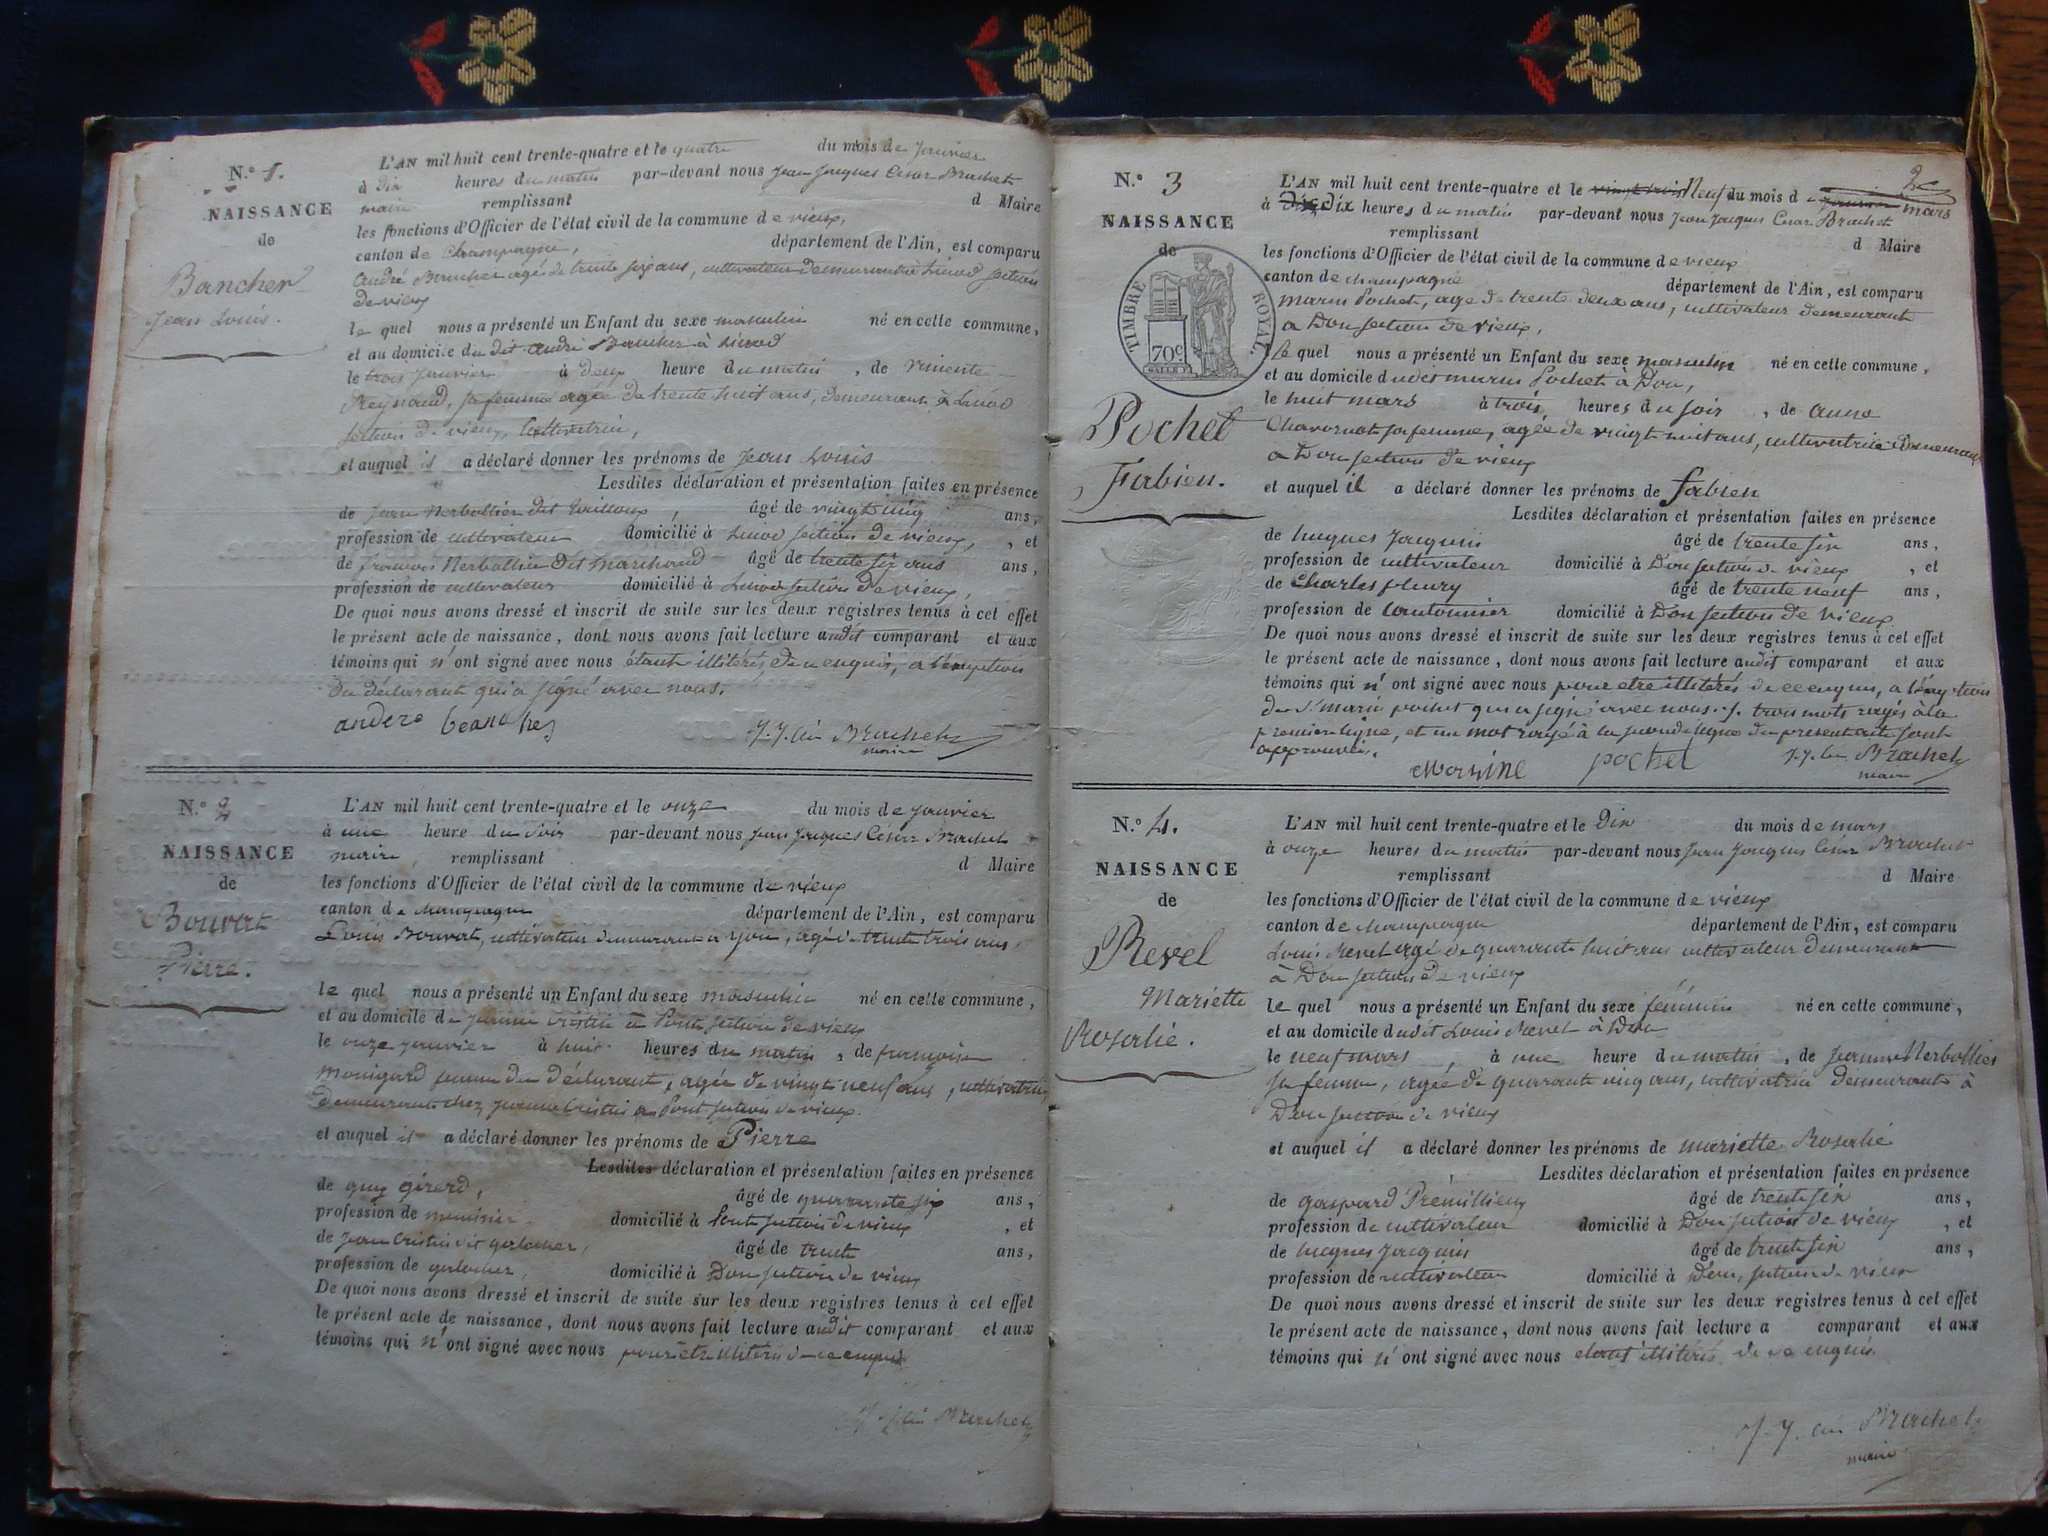 N.° 1.
NAISSANCE
de
Bancher
Jean Louis.
L'AN mil huit cent trente-quatre et le quatre du mois de Janvier
à dix heures du matin par-devant nous Jean Jacques Cesar Brachet
maire remplissant d Maire
les fonctions d'Officier de l'état civil de la commune de vieux,
canton de Champagne, département de l'Ain, est comparu
André Bancher agé de trente six ans, cultivateur demeurant à Linod section
de vieux
le quel nous a présenté un Enfant du sexe masculin né en cette commune,
et au domicile du dit andré Bancher à Linod
le trois Janvier à deux heure du matin, de
Reynaud, sa femme agée de trente huit ans, demeurant à Linod
section de vieux, Cultivatrice,
et auquel il a déclaré donner les prénoms de Jean Louis
Lesdites déclaration et présentation faites en présence
de Jean Nerbollier dit âgé de vingt cinq ans,
profession de cultivateur domicilié à Linod section de vieux, , et
de francois Nerbollier dit Marchand âgé de trente six ans ans,
profession de cultivateur domicilié à Linod section de vieux,
De quoi nous avons dressé et inscrit de suite sur les deux registres tenus à cet effet
le présent acte de naissance, dont nous avons fait lecture audit comparant et aux
témoins qui n'ont signé avec nous étant illitérés, de ce enquis, a l'exception
du déclarant qui a signé avec nous.
J.J. Cés Brachet
maire
N.° 2
NAISSANCE
de
Bouvat
Pierre.
L'AN mil huit cent trente-quatre et le onze du mois de Janvier
à une heure du soir par-devant nous Jean Jacques Cesar Brachet
maire, remplissant d Maire
les fonctions d'Officier de l'état civil de la commune de vieux
canton de champagne département de l'Ain, est comparu
Louis Bouvat, cultivateur demeurant a yon, agé de trente trois ans,
le quel nous a présenté un Enfant du sexe masculin né en cette commune,
et au domicile de Jeanne Cristin a Pont section de vieux
le onze janvier à huit heures du matin, de francoise
Monigard femme du déclarant, agée de vingt neuf ans, cultivatrice
demeurant chez Jeanne Cristin a Pont section de vieux.
et auquel il a déclaré donner les prénoms de Pierre
Lesdites déclaration et présentation faites en présence
de guy girerd, âgé de quarante six ans,
profession de menisier domicilié à Pont section de vieux , et
de Jean Cristin dit galocher, âgé de trente ans,
profession de galocher, domicilié à Don section de vieux
De quoi nous avons dressé et inscrit de suite sur les deux registres tenus à cet effet
le présent acte de naissance, dont nous avons fait lecture audit comparant et aux
témoins qui n'ont signé avec nous pour etre illitérés de ce enquis
J. J. Cés Brachet
2
N.° 3
NAISSANCE
de
TIMBRE ROYAL.
70c
Pochet
Fabien.
L'AN mil huit cent trente-quatre et le vingt trois Neuf du mois de Janvier mars
à Dix Dix heures du matin par-devant nous Jean Jacques Cesar Brachet
remplissant d Maire
les fonctions d'Officier de l'état civil de la commune de vieux
canton de champagne département de l'Ain, est comparu
marin Pochet, age de trente deux ans, cultivateur demeurant
a Don section de vieux,
le quel nous a présenté un Enfant du sexe masculin né en cette commune,
et au domicile dudit marin Pochet à Don,
le huit mars à trois, heures du soir , de anne
Chavornot sa femme, agée de vingt huit ans, cultivatrice demeurant
a Don section de vieux
et auquel il a déclaré donner les prénoms de fabien
Lesdites déclaration et présentation faites en présence
de hugues Jacquin âgé de trente six ans,
profession de cultivateur domicilié à Don section de vieux , et
de Charles fleury âgé de trente neuf ans,
profession de Cantonnier domicilié à Don section de vieux
De quoi nous avons dressé et inscrit de suite sur les deux registres tenus à cet effet
le présent acte de naissance, dont nous avons fait lecture audit comparant et aux
témoins qui n'ont signé avec nous pour etre illitérés de ce enquis, a l'exception
du S.r marin pochet qui a signé avec nous. trois mots rayés à la
premiere ligne, et un mot rayé à la seconde ligne du present acte sont
approuvés.
pochet
J.J. Cés Brachet
maire
N.° 4.
NAISSANCE
de
Revel
Mariette
Rosalie.
L'AN mil huit cent trente-quatre et le Dix du mois de mars
à onze heures du matin par-devant nous Jean Jacques César Brachet
remplissant d Maire
les fonctions d'Officier de l'état civil de la commune de vieux
canton de champagne département de l'Ain, est comparu
Louis Revel agé de quarante huit ans cultivateur demeurant
à Don section de vieux
le quel nous a présenté un Enfant du sexe féminin né en cette commune,
et au domicile dudit Louis Revel à Don
le neuf mars, à une heure du matin, de Jeanne Nerbollier
sa femme, agée de quarante cinq ans, cultivatrice demeurant à
Don section de vieux
et auquel il a déclaré donner les prénoms de mariette Rosalie
Lesdites déclaration et présentation faites en présence
de gaspard Prémillieux âgé de trente six ans,
profession de cultivateur domicilié à Don section de vieux , et
de hugues Jacquin âgé de trente six ans,
profession de cultivateur domicilié à Don, section de vieux
De quoi nous avons dressé et inscrit de suite sur les deux registres tenus à cet effet
le présent acte de naissance, dont nous avons fait lecture a comparant et aux
témoins qui n'ont signé avec nous etant illitérés de ce enquis.
J. J. Cés Brachet
maire